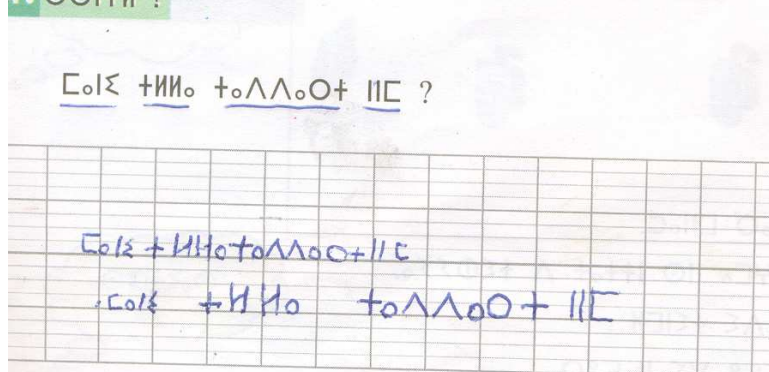 ⵎⴰⵏⵉ ⵜⵍⵍⴰ ⵜⴰⴷⴷⴰⵔⵜ ⵏⵏⵎ ?
ⵎⴰⵏⵉ ⵜⵍⵍⴰⵜⴰⴷⴷⴰⵔⵜⵏⵏⵎ
ⵎⴰⵏⵉ ⵜⵍⵍⴰ ⵜⴰⴷⴷⴰⵔⵜ ⵏⵏⵎ